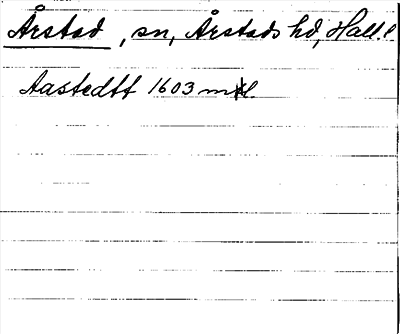 Årstad, sn, Årstads hd, Hall. l
Aastedtt 1603 mtl.